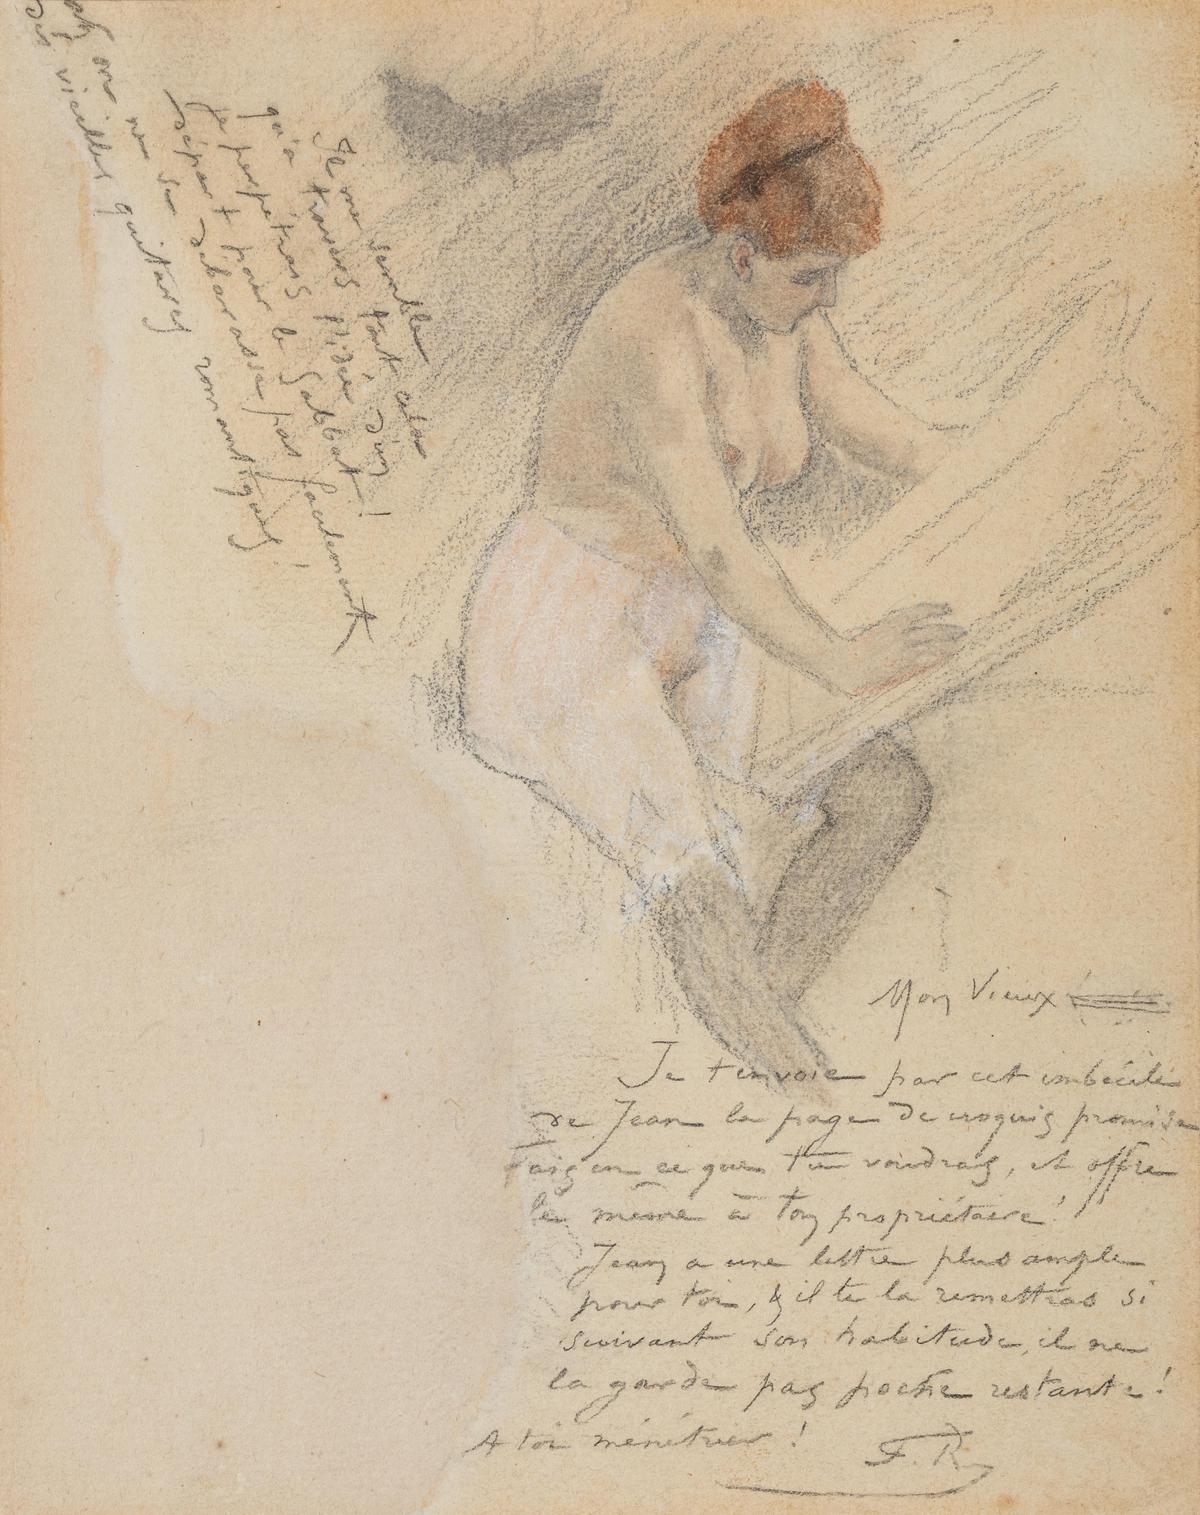 Il me semble tout cela
qu'à travers l'idée d'un
je perpétrais le Sabbat !
départ pour
débarasse pas facilement
on ne se
des vieilles guitares romantiques !
Mon Vieux
Je t'envoie par cet imbécile
de Jean la page de croquis promise
Fais en ce que tu voudras, et offre
le même à ton propriétaire !
Jean a une lettre plus ample
pour toi, & il te la remettras si
suivant son habitude, il ne
la garde pas poche restante !
A toi ménétrier !
F. R